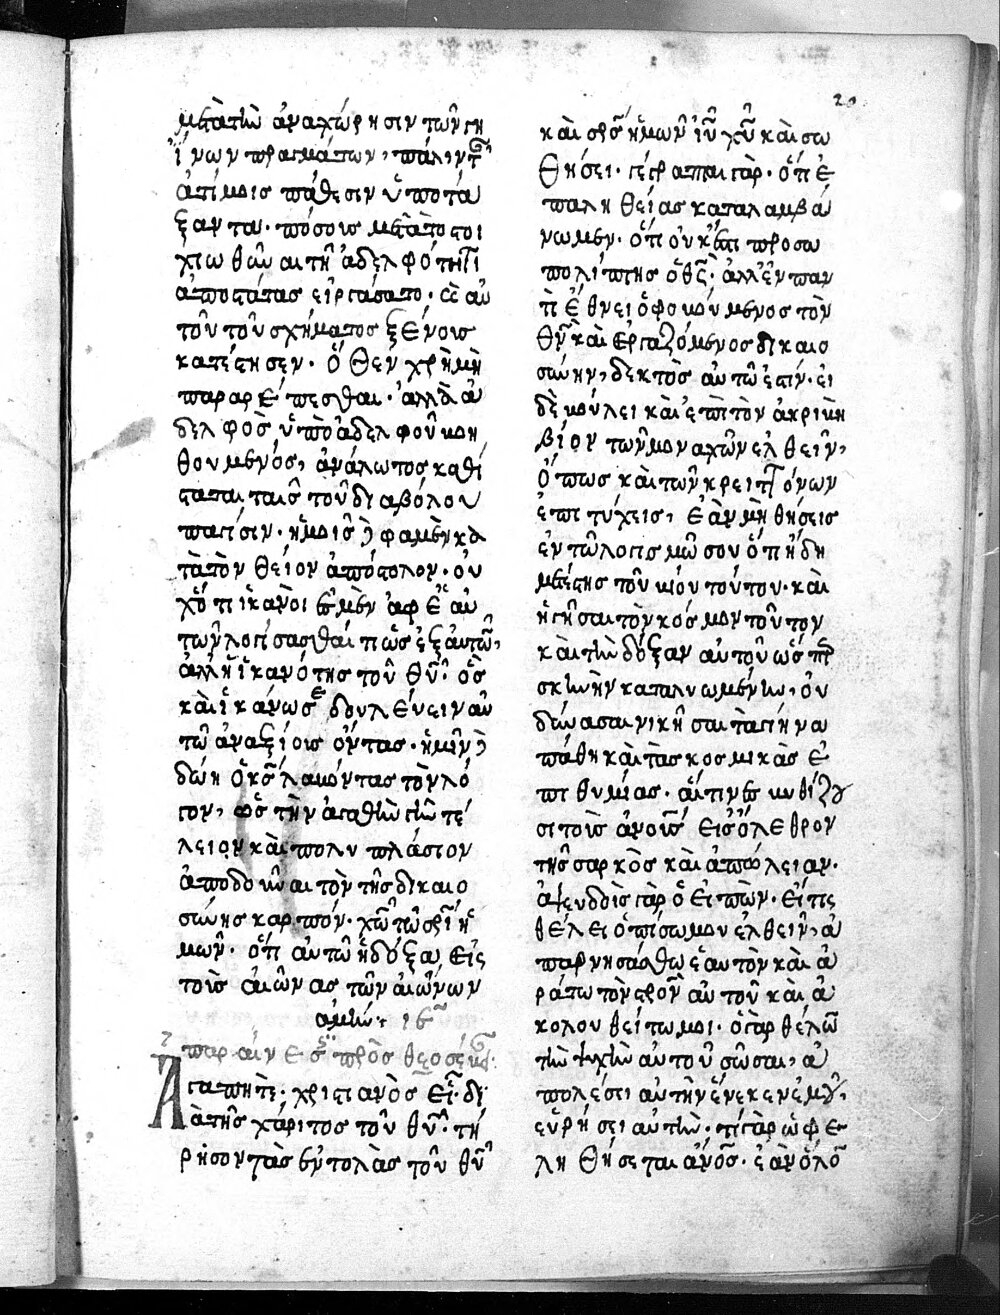 μετὰ τὴν ἀναχώρησιν τῶν γη
ΐνων πραγμάτων, πάλιν τοῖς
ἀτίμοις πάθεσιν ὑποτά
ξανται. πόσους μετὰ τὸ στοι
χιωθῆναι τῇ ἀδελφότητι
ἀποστάτας εἰργάσατο. καὶ αὐ
τοῦ τοῦ σχήματος ξένους
κατέστησεν. ὅθεν χρὴ μὴ
παραρέπεσθαι. ἀλλὰ ἀ
δελφὸς ὑπὸ ἀδελφοῦ βοη
θούμενός, ἀνάλωτος καθί
σταται ταῖς τοῦ διαβόλου
παγίσιν. ἡμεῖς δὲ φαμὲν κα
τὰ τὸν θεῖον ἀπόστολον. οὐ
χ' ὅτι ἱκανοί ἐσμὲν ἀφ' ἑαυ
τῶν λογίσασθαί τι ὡς ἐξ αὐτῶν,
ἀλλ' ἡ ἱκανότης τοῦ θυ. ὃς
καὶ ἱκάνωσε δουλεύειν αὐ
τῷ ἀναξίους ὄντας. ἡμῖν δὲ
δώῃ ὁ κς λαβόντας τὸν λό
γον, ὡς τὴν ἀγαθὴν γῆν τέ
λειον καὶ πολυπλάσιον
ἀποδοῦναι τὸν τῆς δικαιο
σύνης καρπόν. χῶ τῷ σρι ἡ
μῶν. ὅτι αὐτῷ ἡ δόξα εἰς
τοὺς αἰῶνας τῶν αἰώνων
ἀμήν.
παραίνεσις πρὸς θεοσεβεῖς.
Ἀγαπητὲ. χριστιανὸς εἶ. δι
ὰ τῆς χάριτος τοῦ θυ. τή
ρησον τὰς ἐντολὰς τοῦ θυ
καὶ σρς ἡμῶν ιυ χυ καὶ σω
θήσει. γέγραπται γὰρ. ὅτι ἐ
π' ἀληθείας καταλαμβά
νωμεν. ὅτι οὐκ ἔστι προσω
πολίπτης ὁ θς. ἀλλ' ἐν παν
τὶ ἔθνει ὁ φοβούμενος τὸν
θν καὶ ἐργαζόμενος δικαιο
σύνην, δεκτὸς αὐτῷ ἐστίν. εἰ
δὲ βούλει καὶ ἐπὶ τὸν ἀκριβῆ
βίον τῶν μοναχῶν ἐλθεῖν,
ὅπως καὶ τῶν κρειττόνων
ἐπιτύχεις, ἐὰν μὴ θήσεις
ἐν τῷ λογισμῷ σου ὅτι ἤδη
μετέστης τοῦ βίου τούτου. καὶ
ἡγῆσαι τὸν κόσμον τοῦτον
καὶ τὴν δόξαν αὐτοῦ ὥσπερ
σκηνὴν καταλυωμένην, οὐ
δύνασαι νικῆσαι τὰ γήϊνα
πάθη καὶ τὰς κοσμικὰς ἐ
πιθυμίας. αἵτινες βυθίζου
σι τοὺς ανους εἰς ὄλεθρον
τῆς σαρκὸς καὶ ἀπώλειαν.
ἀψευδὸς γὰρ ὁ εἰπών. εἴ τις
θέλει ὀπίσω μου ἐλθεῖν, ἀ
παρνησάσθω ἑαυτὸν καὶ ἀ
ράτω τὸν σρον αὐτοῦ καὶ ἀ
κολουθείτω μοι. ὁ γὰρ θέλων
τὴν ψυχὴν αὐτοῦ σῶσαι, ἀ
πολέσει αὐτὴν ἕνεκεν ἐμοῦ,
εὑρήσει αὐτὴν. τί γὰρ ὠφε
ληθήσεται ανος. ἐὰν ὅλον